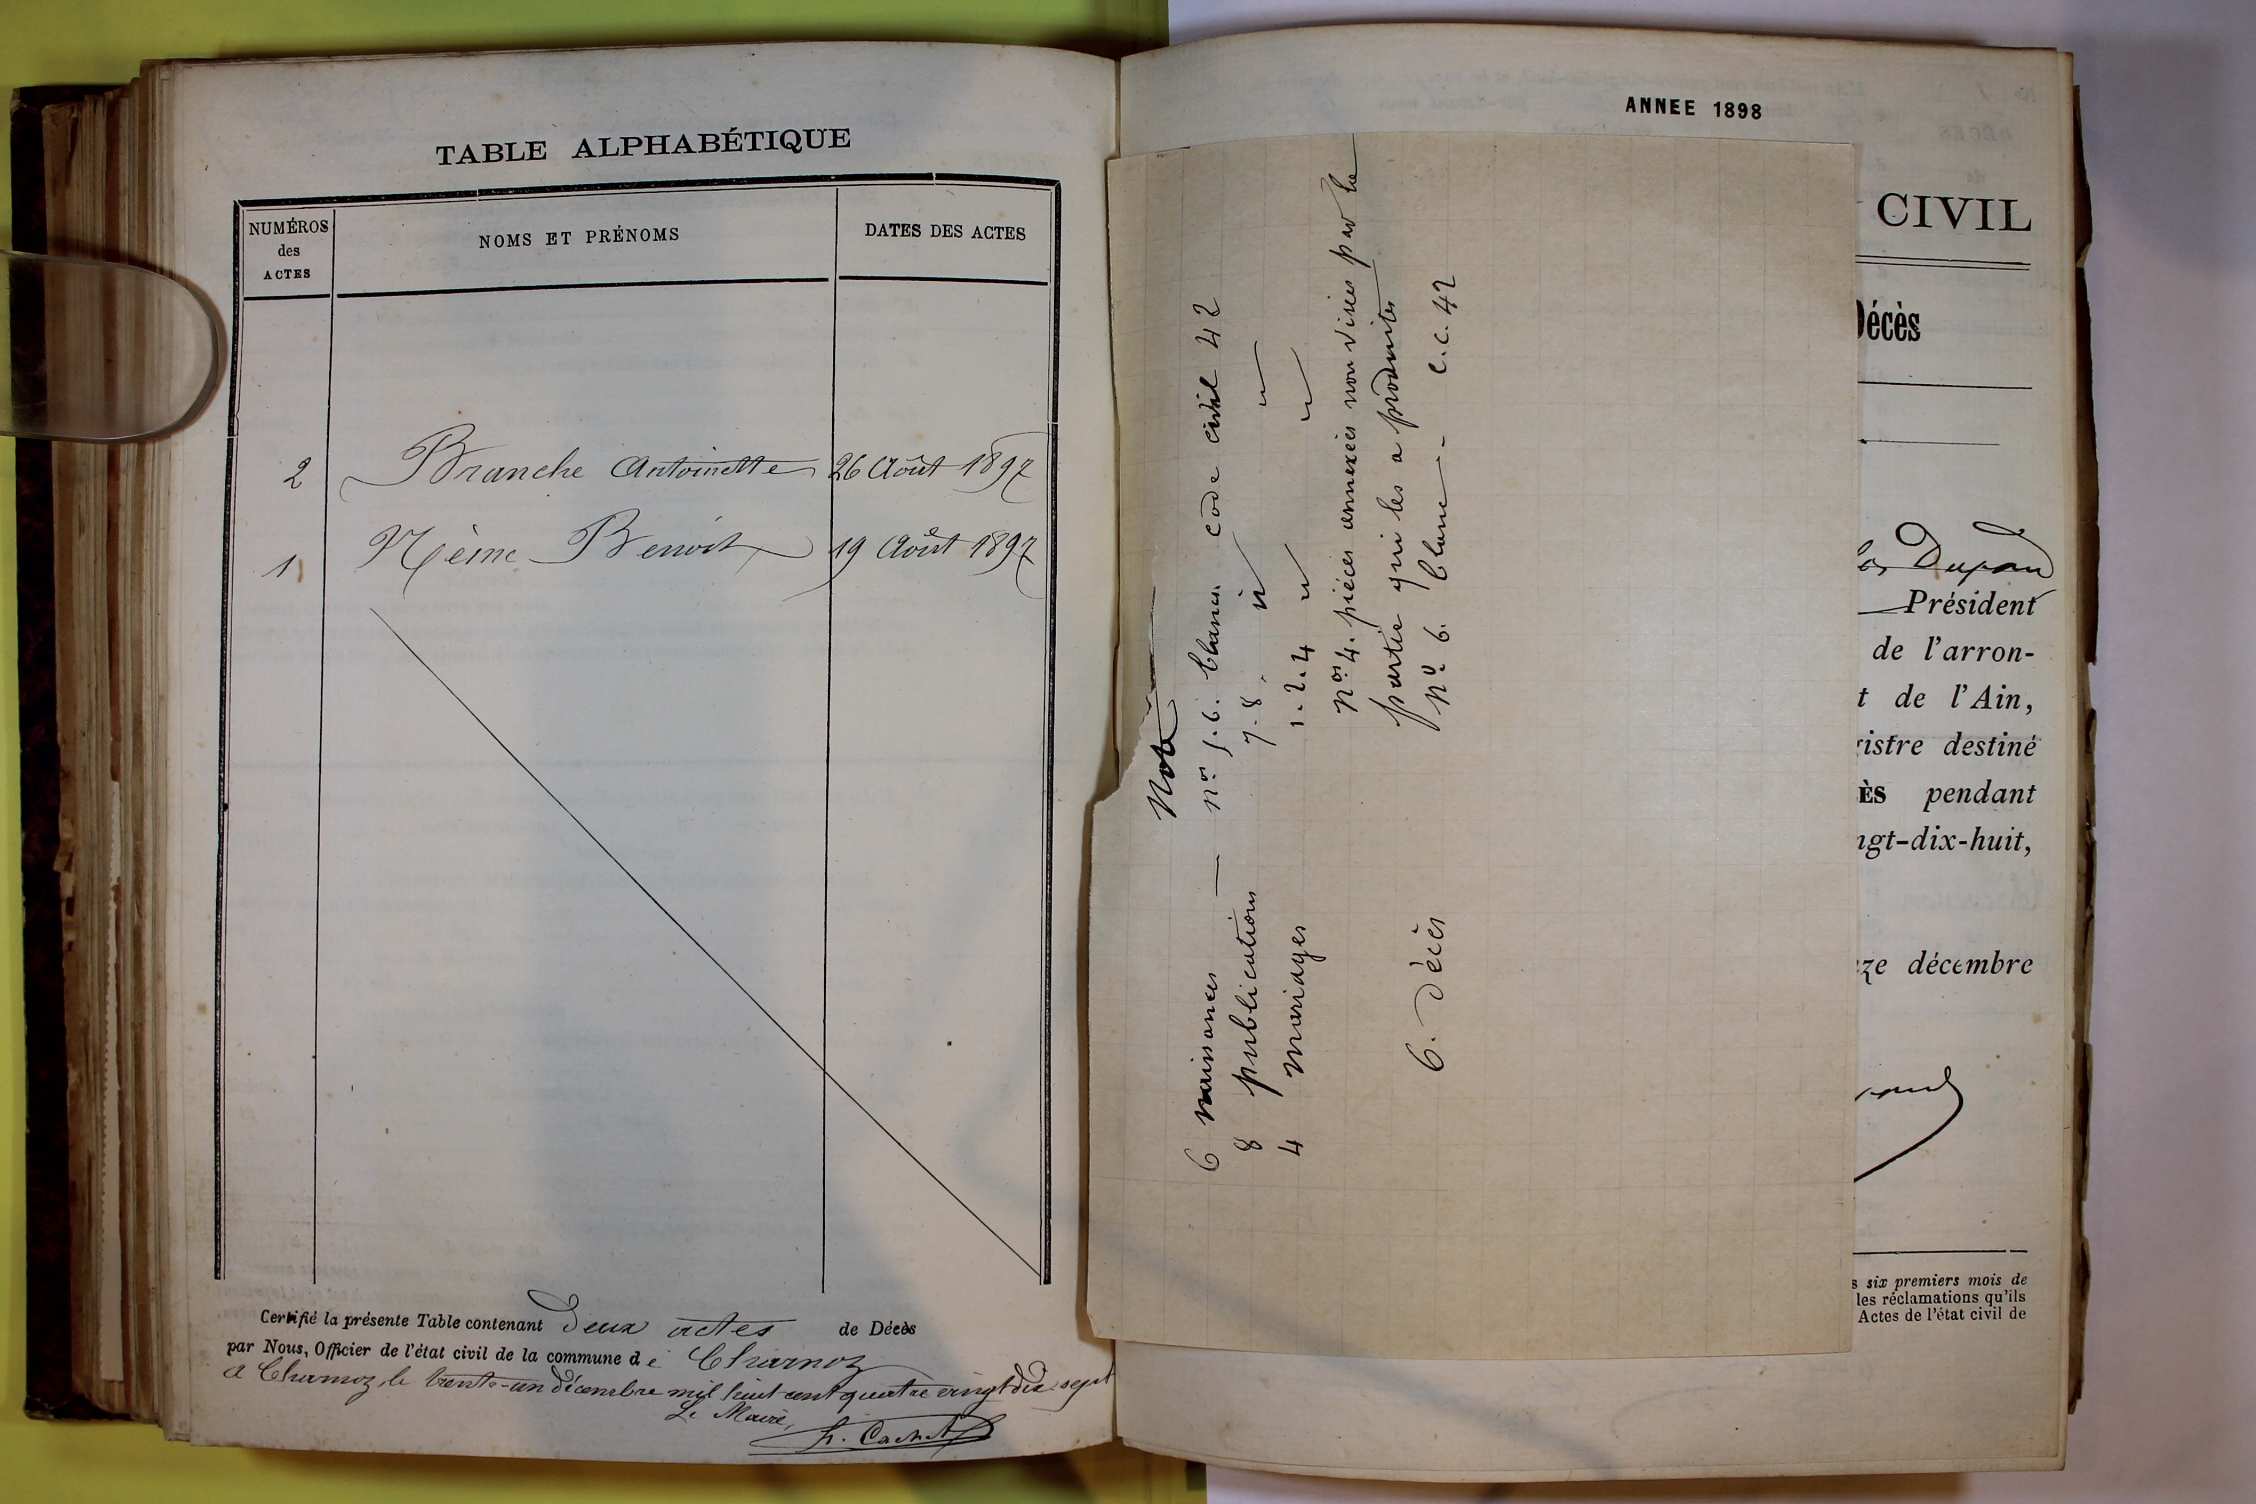 TABLE ALPHABÉTIQUE
NUMÉROS
des
ACTES
NOMS ET PRÉNOMS
DATES DES ACTES
2 Branche Antoinette 26 Août 1897
1 Nème Benoit 19 Août 1897
Certifié la présente Table contenant deux actes de Décès
par Nous, Officier de l'état civil de la commune de Charnoz
à Charnoz, le trente-un décembre mil huit cent quatre vingt dix sept
Le Maire,
ANNEE 1898
Note
6 naissances — nos 5.6. blancs code civil 42
8 publications 7.8. " "
4 mariages 1.2.4 " "
nos 4. pièces annexées non visées par la
partie qui les a produites
6. décès no 6. blanc - c.c. 42
CIVIL
Décès
Dupond
Président
de l'arron-
t de l'Ain,
istre destiné
ÈS pendant
ngt-dix-huit,
ze décembre
s six premiers mois de
les réclamations qu'ils
Actes de l'état civil de